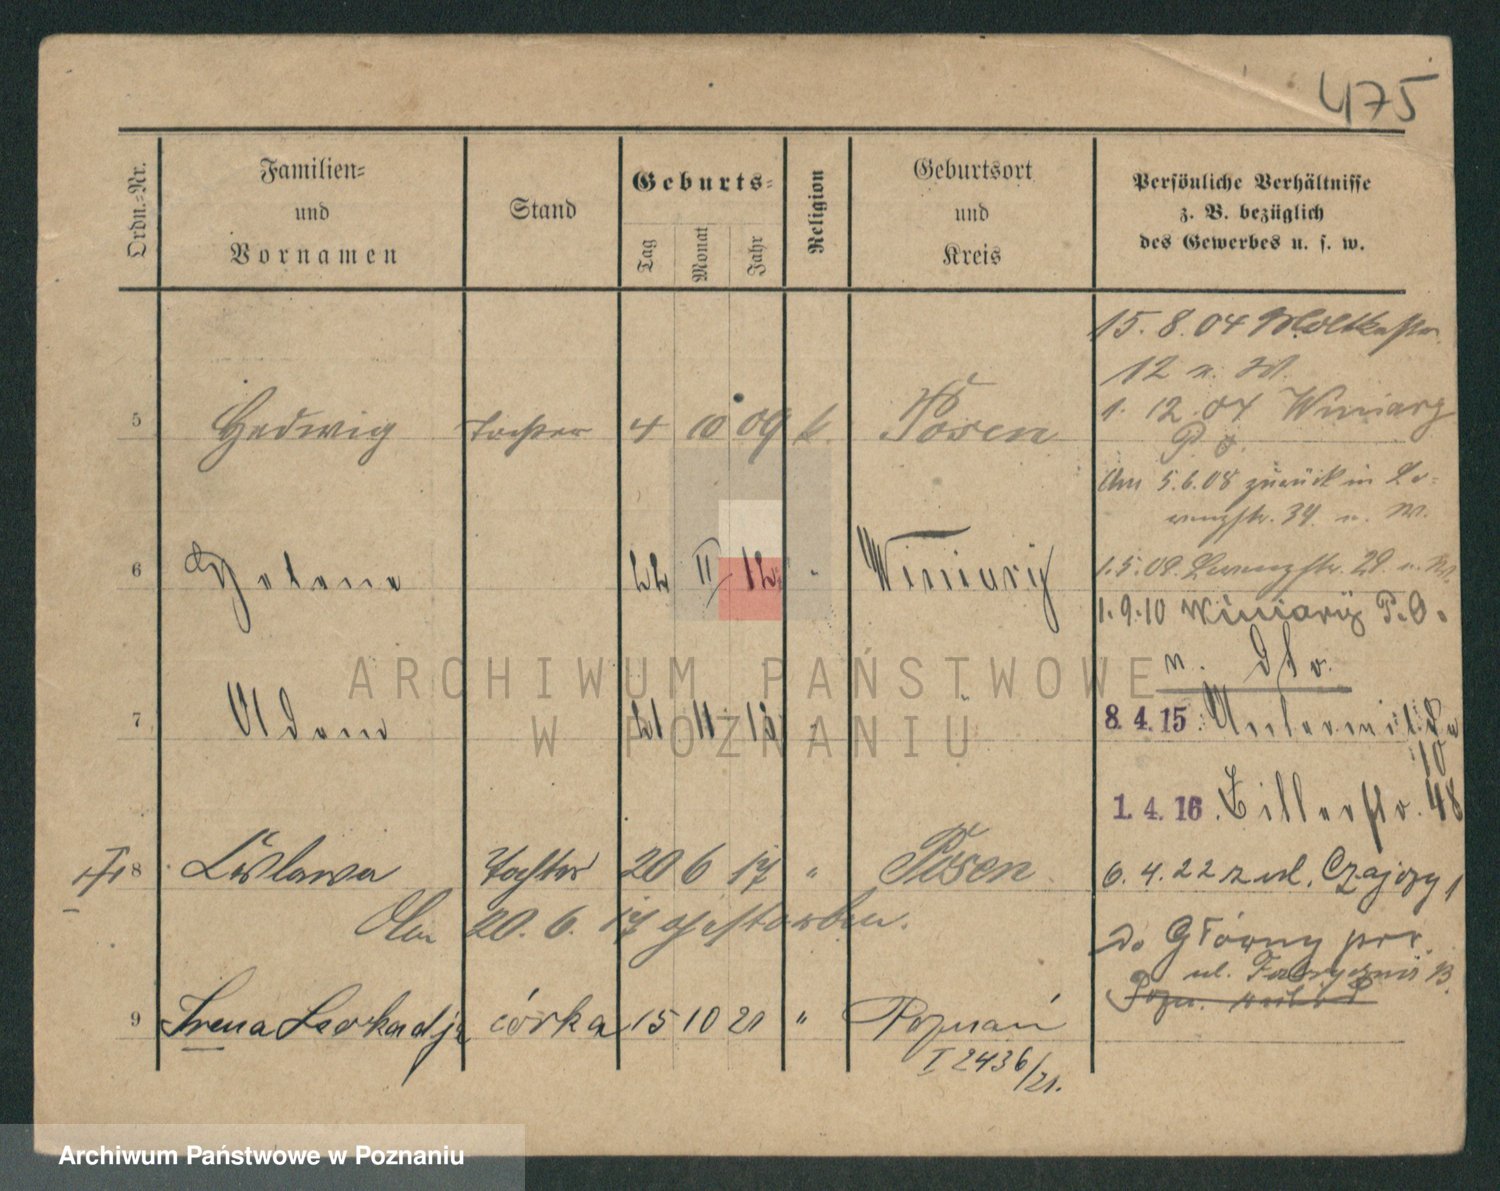 475
Ordn.-Nr.
Familien-
und
Vornamen
Stand
Geburts-
Tag
Monat
Jahr
Religion
Geburtsort
und
Kreis
Persönliche Verhältnisse
z. B. bezüglich
des Gewerbes u. s. w.
15. 8. 04 Moltkestr.
12 n. W.
1. 12. 04 Winiary
P. O.
5 Hedwig Tochter 4 10 09 k. Posen
Am 5.6.08 zurück in Lo-
renzstr. 34 n. W.
6 Helene 22 II 12 Winiary
1. 5. 09. Lorenzstr. 29. n. W.
1. 9. 10 Winiary P. O.
n. dto.
7 Adam 21 11 15
8. 4. 15. Unterwilda
10
1. 4. 16. 48
8 Tochter 20 6 17 " Posen
6. 4. 22 z ul. Czajczy 1
Am 20. 6. 17 gestorben.
Do Główny
ul. Fabryczna
9 Irena Leokadja córka 15 10 21 " Poznań
I 2436/21.
ARCHIWUM PAŃSTWOWE
W POZNANIU
Archiwum Państwowe w Poznaniu